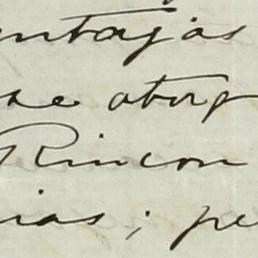 entajas
se otorg
Rincon
ias; pe